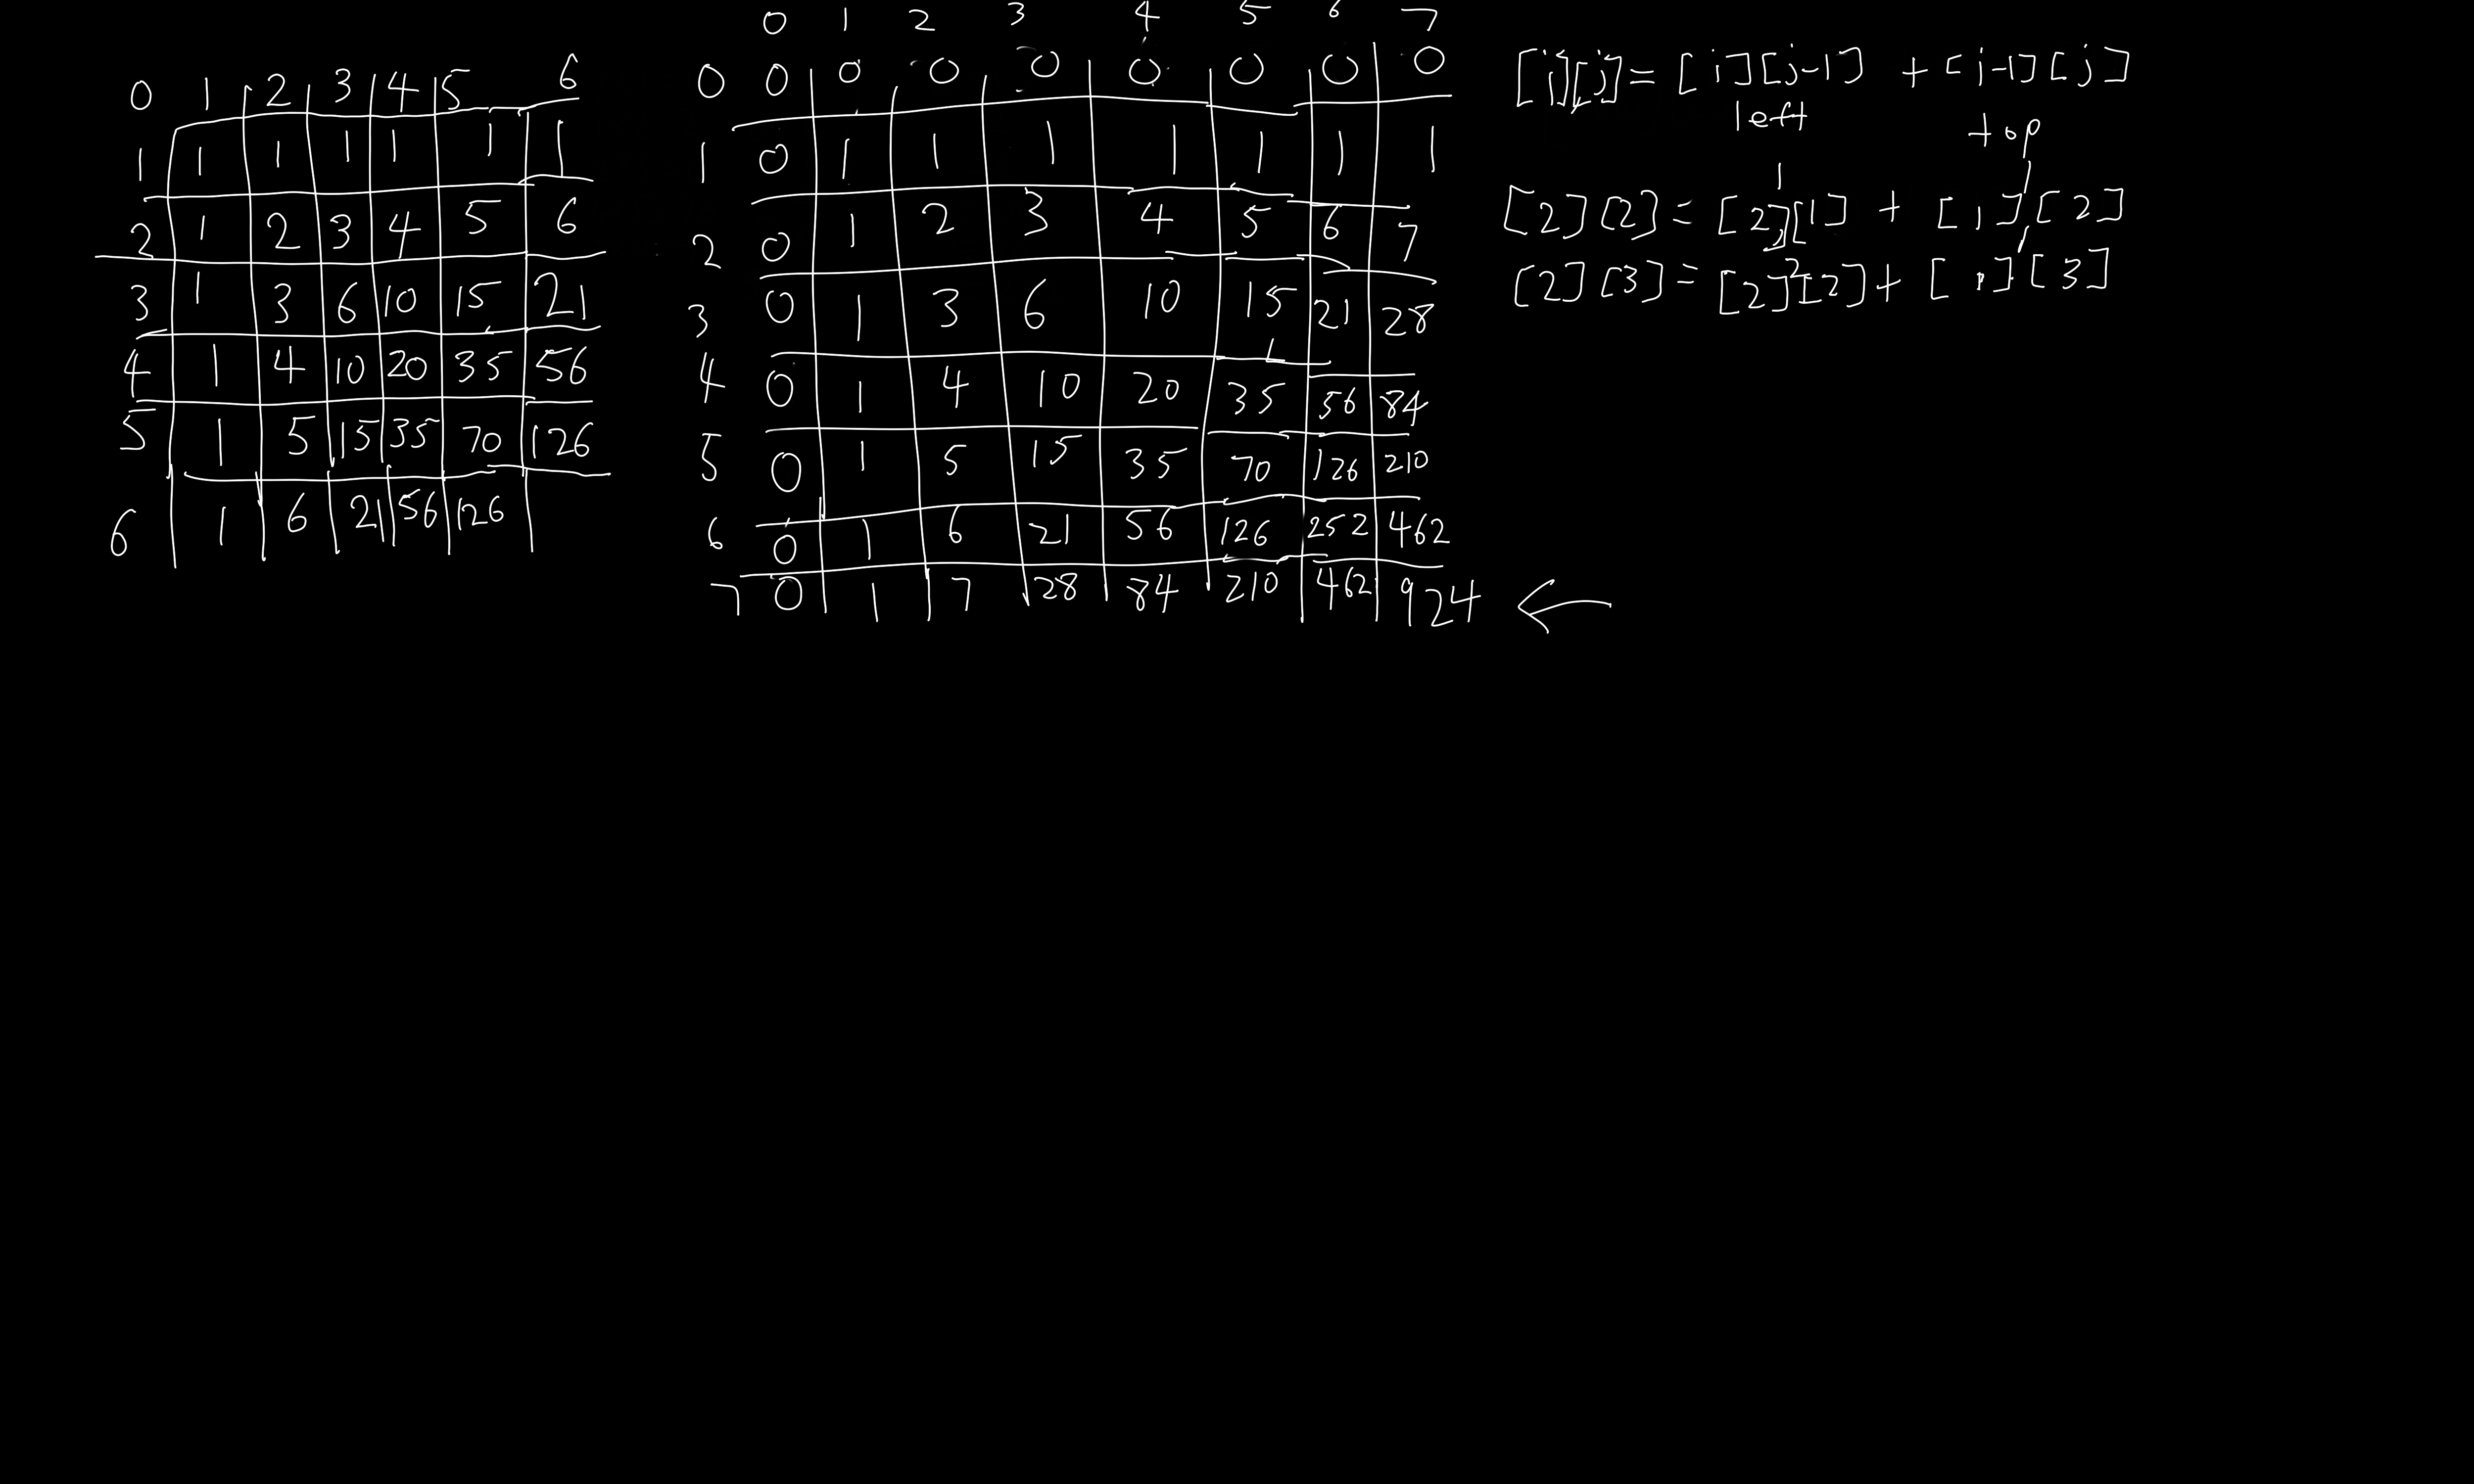 0 1 2 3 4 5 6
1 1 1 1 1 1 1
2 1 2 3 4 5 6
3 1 3 6 10 15 21
4 1 4 10 20 35 56
5 1 5 15 35 70 126
6 1 6 21 56 126
0 1 2 3 4 5 6 7
0 0 0 0 0 0 0 0 0
1 0 1 1 1 1 1 1 1
2 0 1 2 3 4 5 6 7
3 0 1 3 6 10 15 21 28
4 0 1 4 10 20 35 56 84
5 0 1 5 15 35 70 126 210
6 0 1 6 21 56 126 252 462
7 0 1 7 28 84 210 462 924 ←
[i][j] = [i][j-1] + [j-1][j]
left top
1 1
[2][2] = [2][1] + [1][2]
2 1
[2][3] = [2][2] + [1][3]